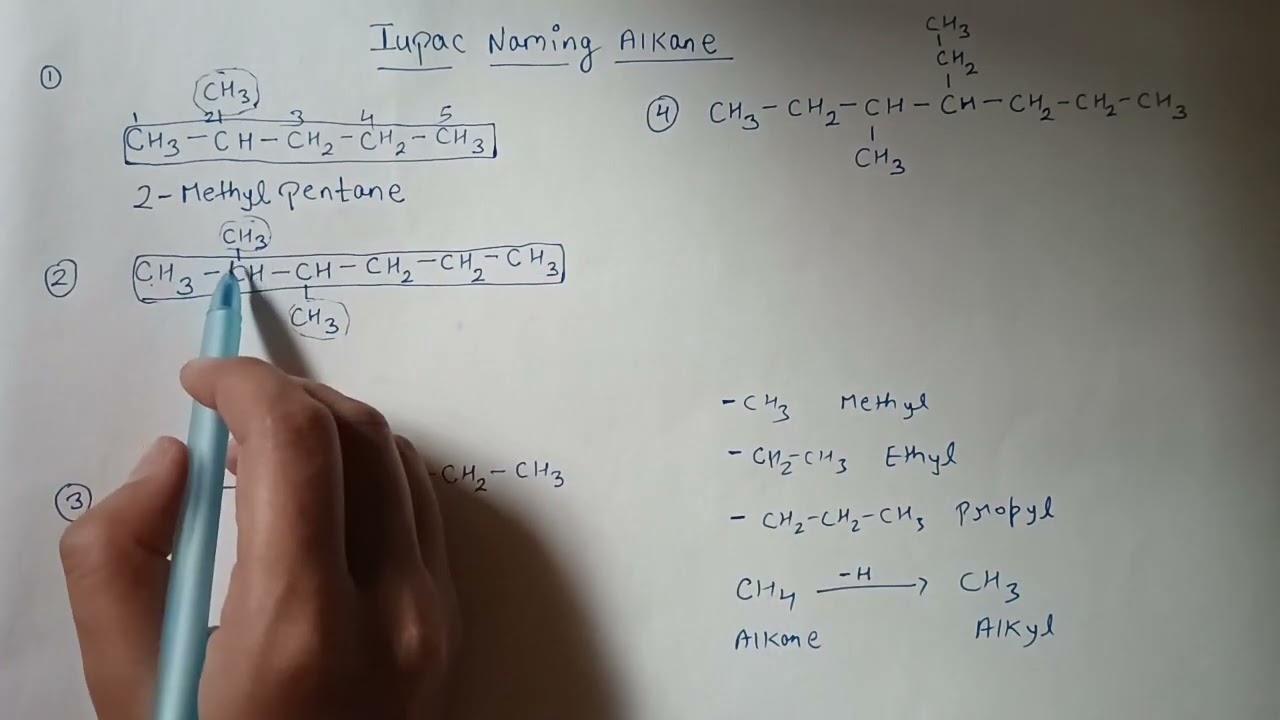 Iupac Naming Alkane
①
CH3
1 2 3 4 5
CH3 - CH - CH2 - CH2 - CH3
2-Methyl pentane
②
CH3
CH3 - CH - CH - CH2 - CH2 - CH3
CH3
③
- CH2 - CH3
CH3
CH2
④ CH3 - CH2 - CH - CH - CH2 - CH2 - CH3
CH3
- CH3 Methyl
- CH2-CH3 Ethyl
- CH2-CH2-CH3 Propyl
CH4 -H → CH3
Alkane Alkyl